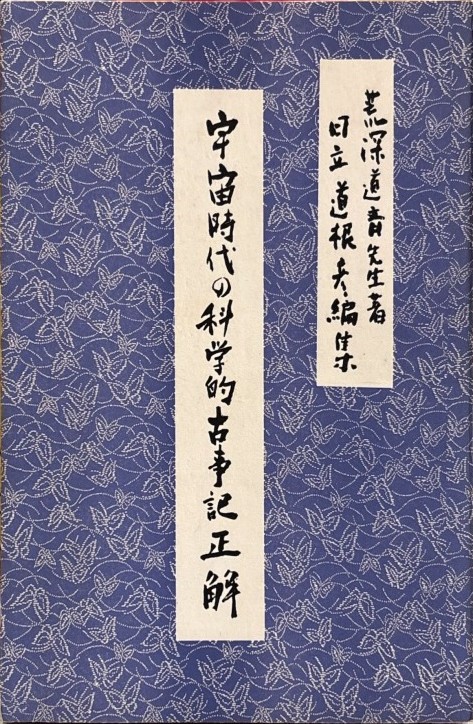 荒深道斉先生著
日立道根彦編集
宇宙時代の科学的古事記正解